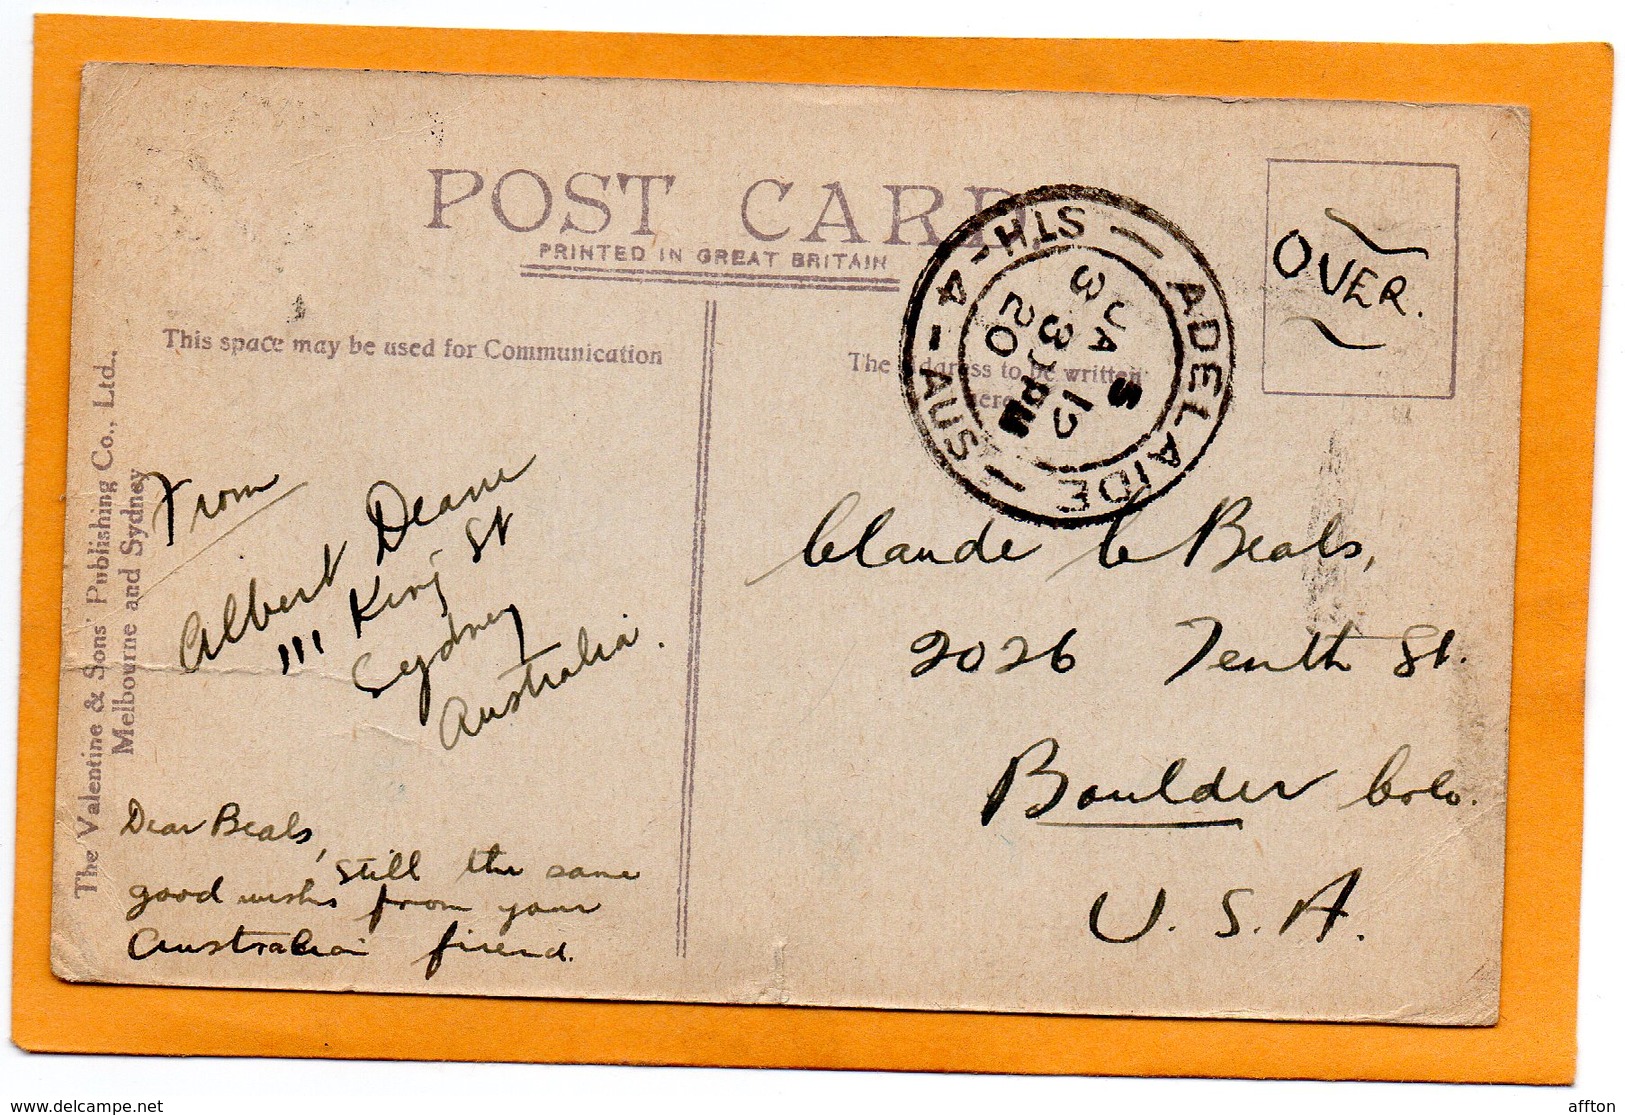 POST CARD
PRINTED IN GREAT BRITAIN
This space may be used for Communication
The Address to be written
here
The Valentine & Sons' Publishing Co., Ltd.,
Melbourne and Sydney
OVER.
ADELAIDE
STH - 4 - AUS
3
20
From
Albert Deane
111 King St
Sydney
Australia.
Dear Beals,
still the same
good wishes from your
Australian friend.
Claude C Beals,
2026 Tenth St.
Boulder Colo.
U. S. A.
www.delcampe.net
affton